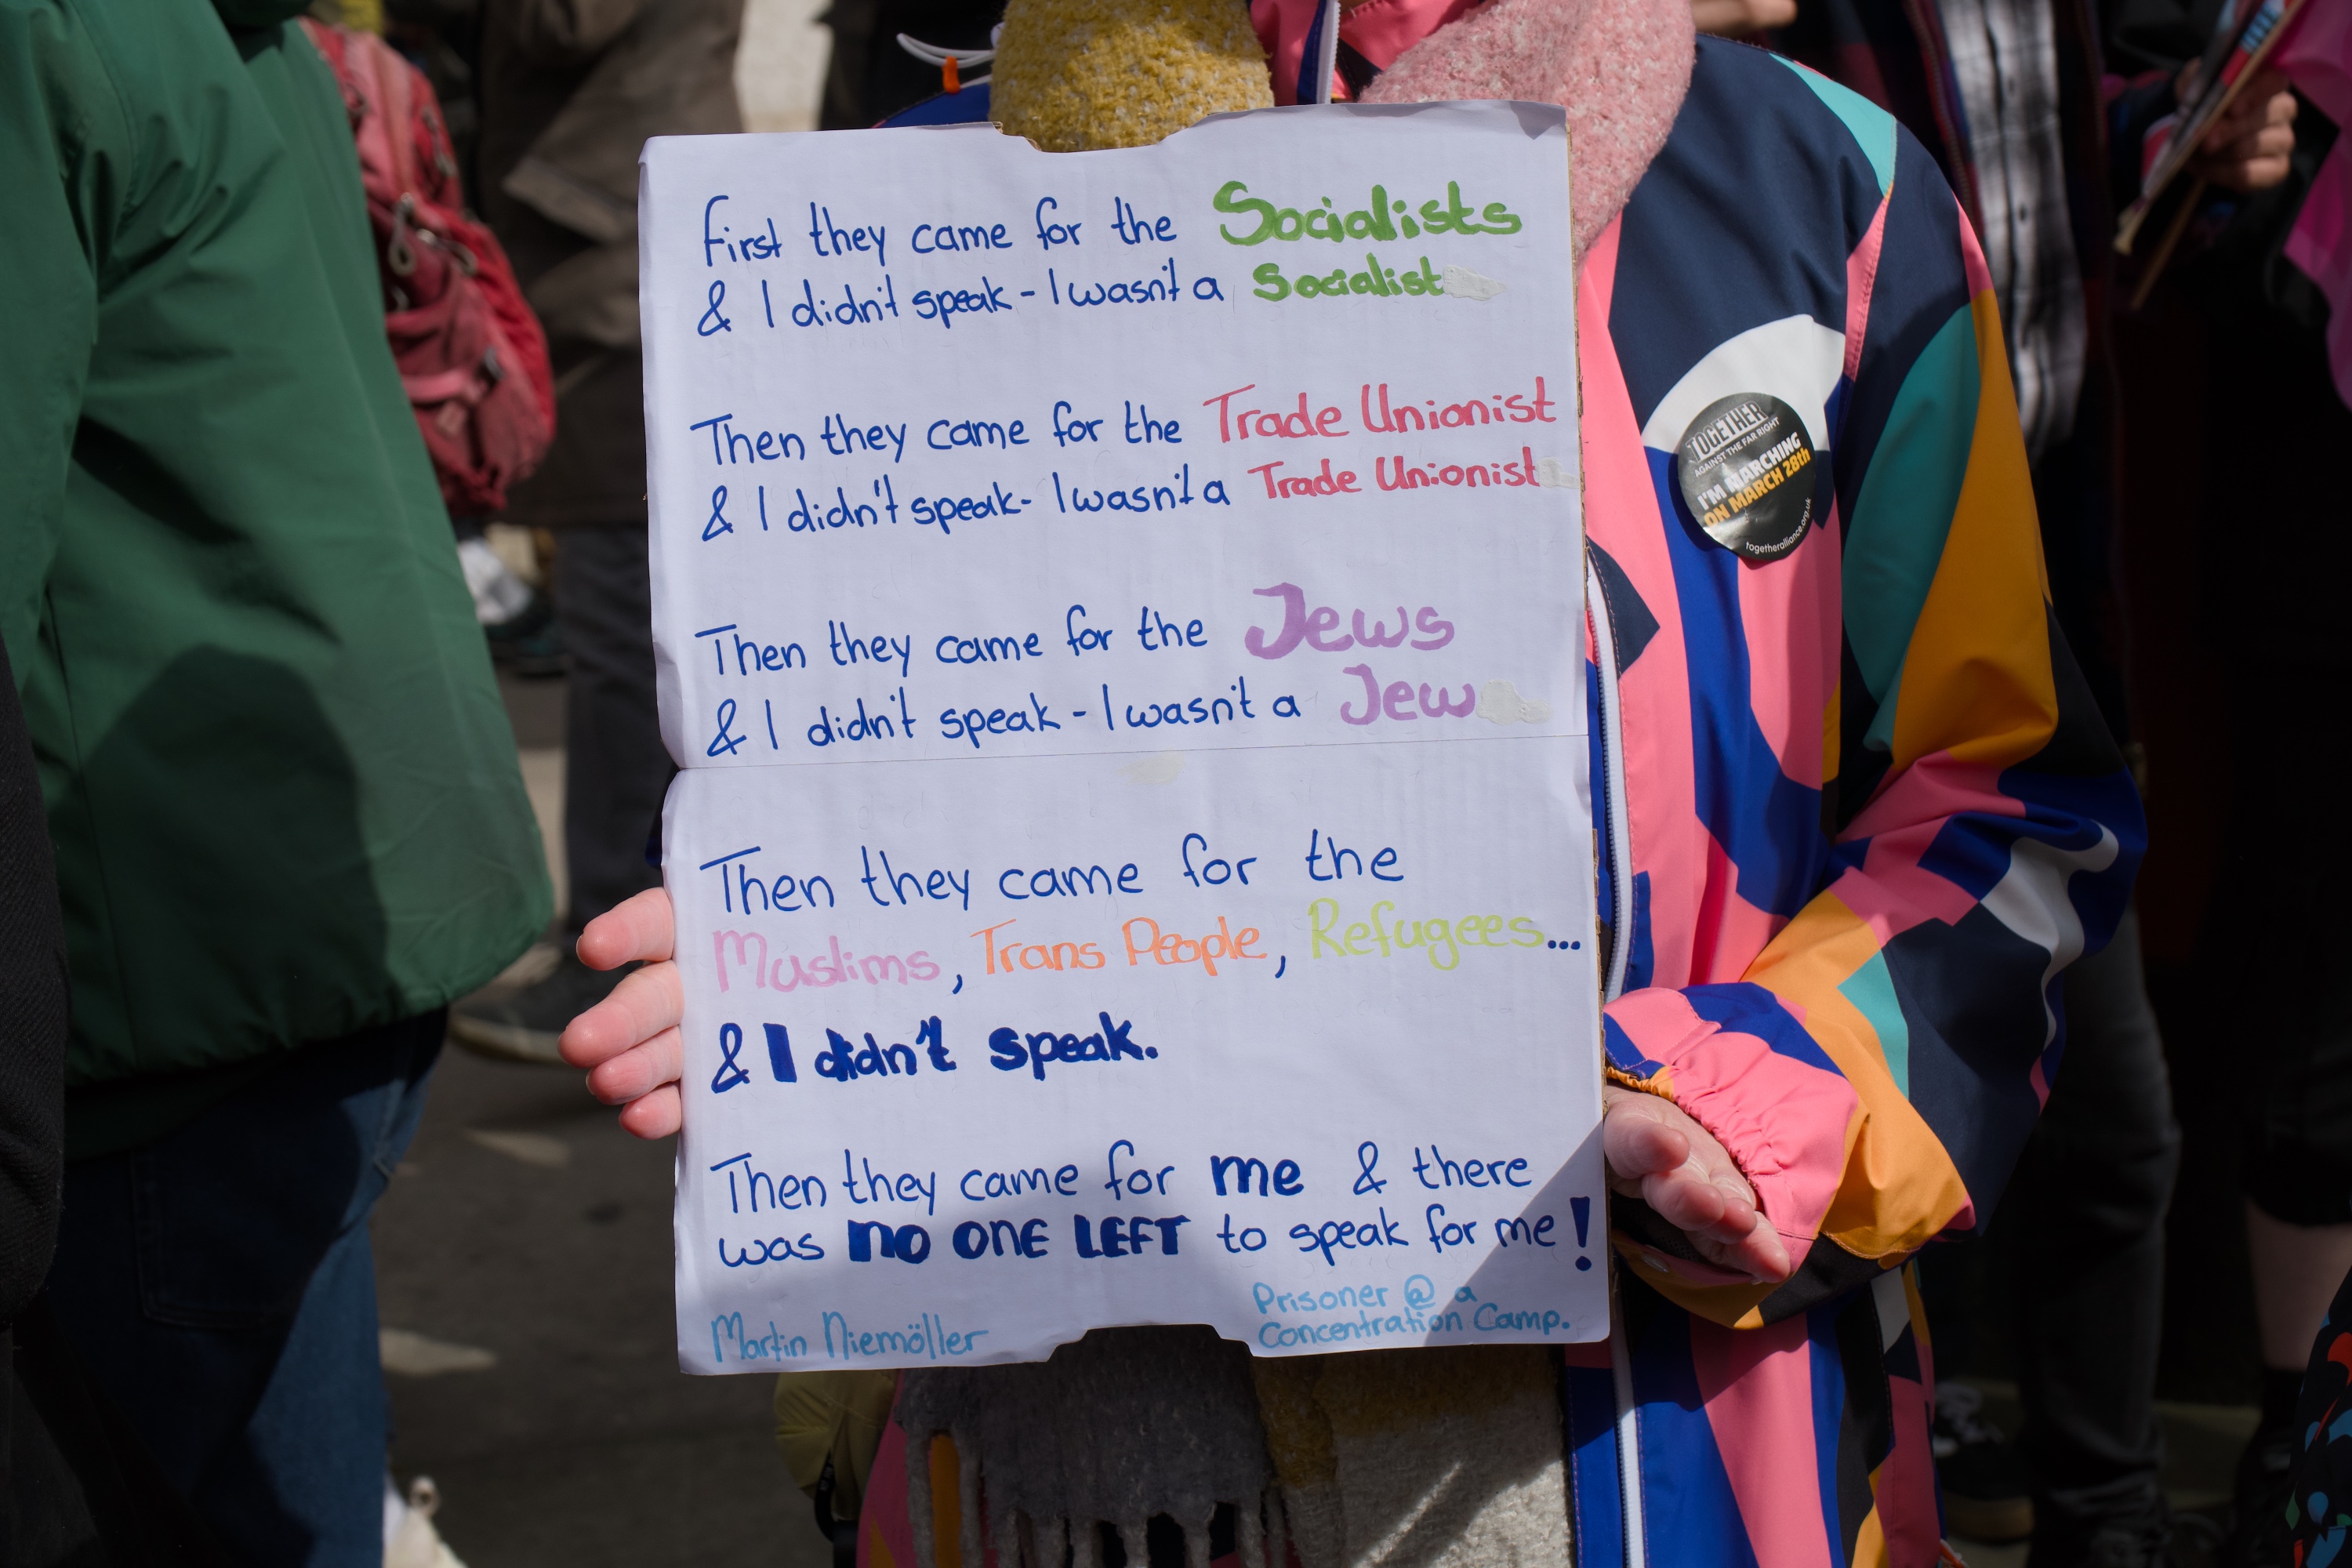 First they came for the Socialists
& I didn't speak - I wasn't a Socialist
Then they came for the Trade Unionist
& I didn't speak - I wasn't a Trade Unionist
Then they came for the Jews
& I didn't speak - I wasn't a Jew
Then they came for the
Muslims, Trans People, Refugees...
& I didn't speak.
Then they came for me & there
was NO ONE LEFT to speak for me!
Martin Niemöller
Prisoner @ a
Concentration Camp.
TOGETHER
AGAINST THE FAR RIGHT
I'M MARCHING
ON MARCH 28th
togetheralliance.org.uk